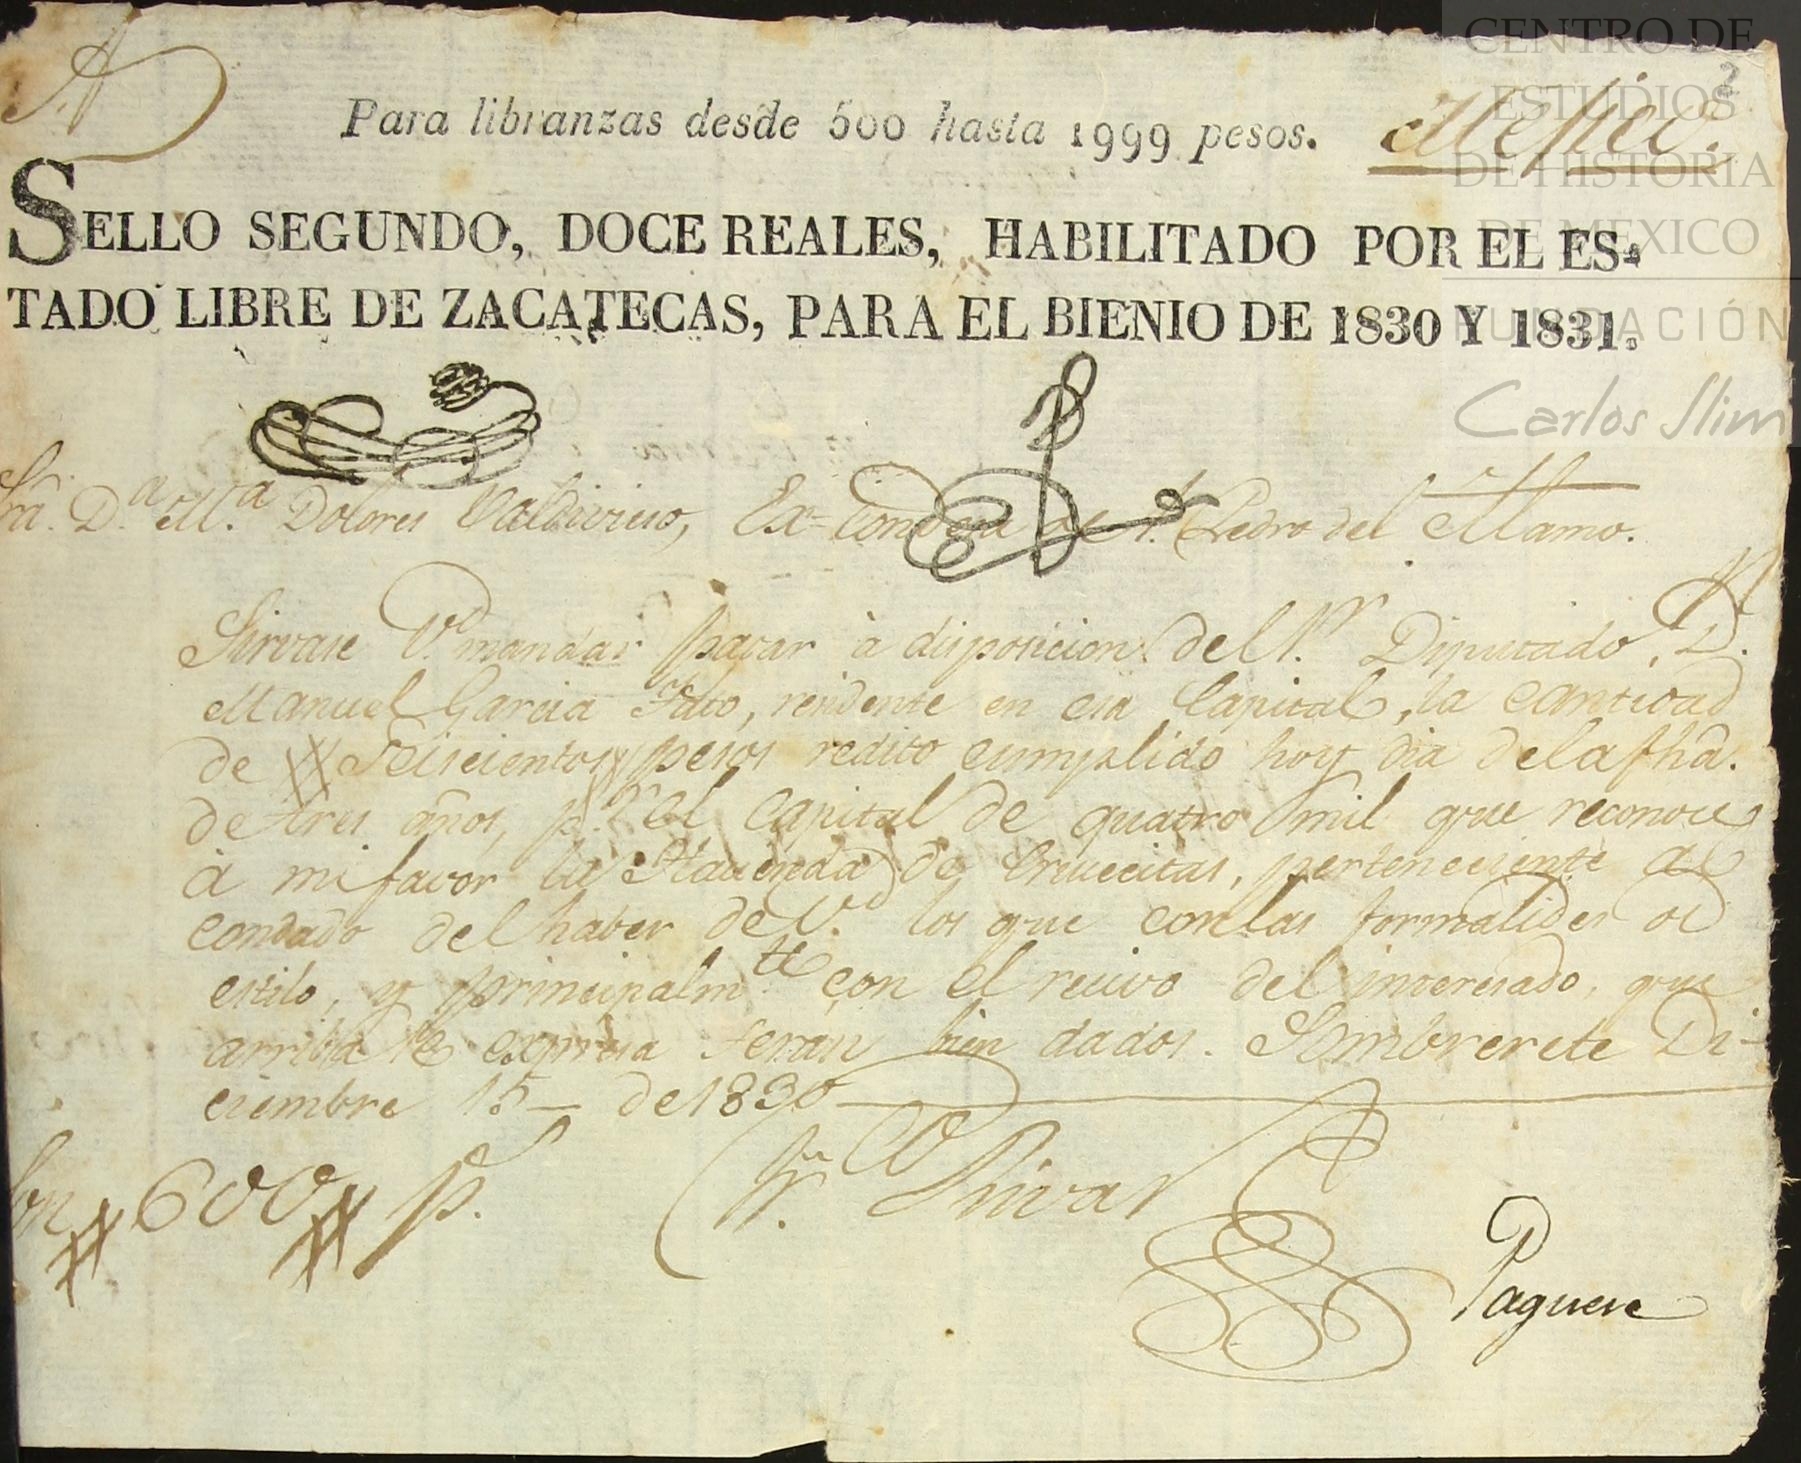 A
CENTRO DE
ESTUDIOS
DE HISTORIA
DE MEXICO
FUNDACIÓN
Carlos Slim
2
Para libranzas desde 500 hasta 1999 pesos. Messico.
SELLO SEGUNDO, DOCE REALES, HABILITADO POR EL ES-
TADO LIBRE DE ZACATECAS, PARA EL BIENIO DE 1830 Y 1831.
Sra. D.a M.a Dolores Valdivieso, Ex-Condesa de S. Pedro del Alamo.
Sirvase V.d mandar pasar à disposicion del S.r Diputado, D.
Manuel Garcia, residente en esa Capital, la cantidad
de Seiscientos pesos redito cumplido hoy dia de la fha.
de tres años, p.r el capital de quatro mil que reconoce
à mi favor la Hacienda de Crucecitas, perteneciente al
condado del haber de V.d los que con las formalides de
estilo, y principalm.te con el recivo del interesado, que
arriba se expresa seran bien dados. Sombrerete Di-
ciembre 15 de 1830
Son 600 p.s
Paguese